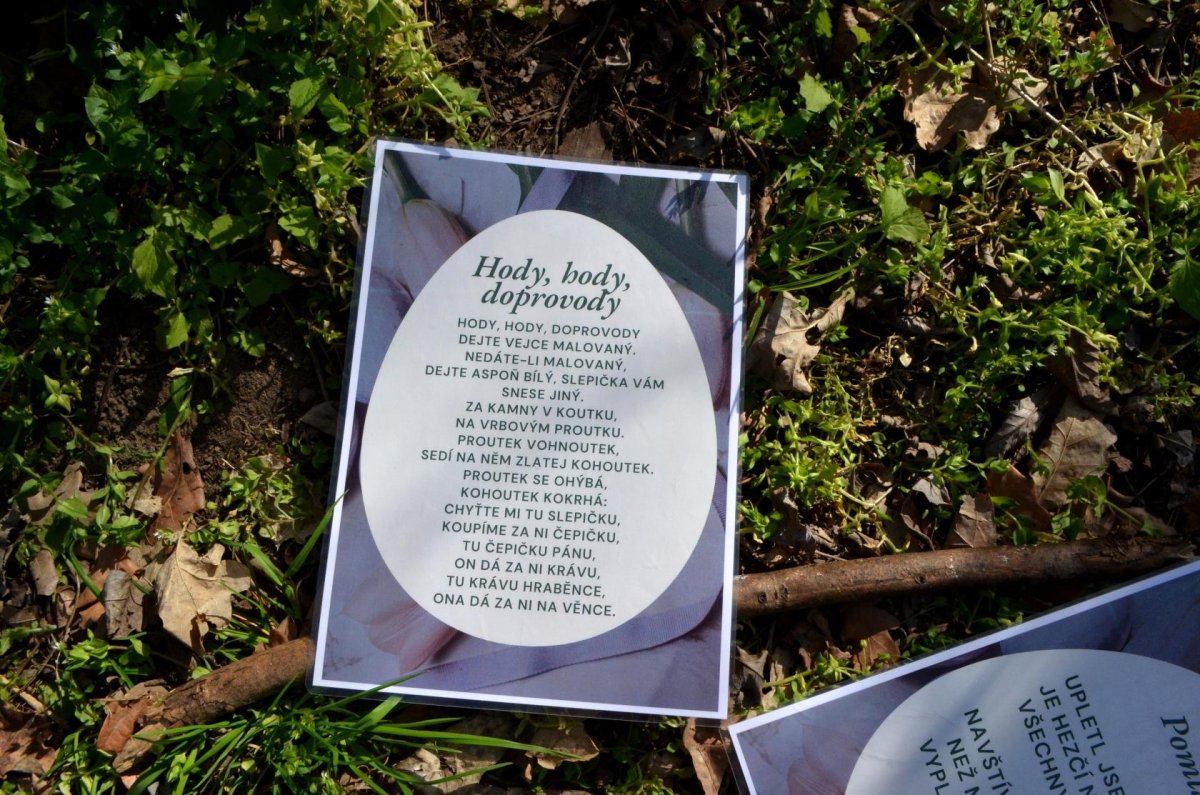 Hody, hody,
doprovody
HODY, HODY, DOPROVODY
DEJTE VEJCE MALOVANÝ.
NEDÁTE-LI MALOVANÝ,
DEJTE ASPOŇ BÍLÝ, SLEPIČKA VÁM
SNESE JINÝ.
ZA KAMNY V KOUTKU,
NA VRBOVÝM PROUTKU.
PROUTEK VOHNOUTEK,
SEDÍ NA NĚM ZLATEJ KOHOUTEK.
PROUTEK SE OHÝBÁ,
KOHOUTEK KOKRHÁ:
CHYŤTE MI TU SLEPIČKU,
KOUPÍME ZA NI ČEPIČKU,
TU ČEPIČKU PÁNU,
ON DÁ ZA NI KRÁVU,
TU KRÁVU HRABĚNCE,
ONA DÁ ZA NI NA VĚNCE.
UPLETL JSE
JE HEZČÍ N
VŠECHNY
NAVŠTÍV
NEŽ
VYPL